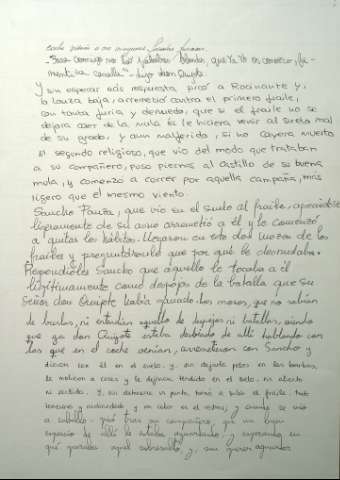 coche
- "Para conmigo no hay palabras blandas, que ya yo os conozco, fe-
mentida canalla" - dijo don Quijote
Y sin esperar más respuesta picó a Rocinante y,
la lanza baja, arremetió contra el primero fraile,
con tanta furia y denuedo, que si el fraile no se
dejara caer de la mula él le hiciera venir al suelo mal
de su grado, y aun malferido, si no cayera muerto
El segundo religioso, que vio del modo que trataban
a su compañero, puso piernas al castillo de su buena
mula, y comenzó a correr por aquella campaña, más
ligero que el mesmo viento.
Sancho Panza, que vio en el suelo al fraile, apeándose
ligeramente de su asno arremetió a él y le comenzó
a quitar los hábitos. Llegaron en esto dos mozos de los
frailes y preguntáronle que por qué le desnudaba.
Respondióles Sancho que aquello le tocaba a él
legítimamente como despojos de la batalla que su
Señor don Quijote había ganado. Los mozos, que no sabían
de burlas, ni entendían aquello de despojos ni batallas, viendo
que ya don Quijote estaba desviado de allí hablando con
las que en el coche venían, arremetieron con Sancho y
dieron con él en el suelo, y, sin dejarle pelos en las barbas,
le molieron a coces y le dejaron tendido en el suelo, sin aliento
ni sentido. Y, sin detenerse un punto, tornó a subir el fraile, todo
temeroso y acobardado, y sin color en el rostro; y cuando se vio
a caballo picó tras su compañero, que un buen
espacio de allí le estaba aguardando, y esperando en
qué paraba aquel sobresalto, y, sin querer aguardar